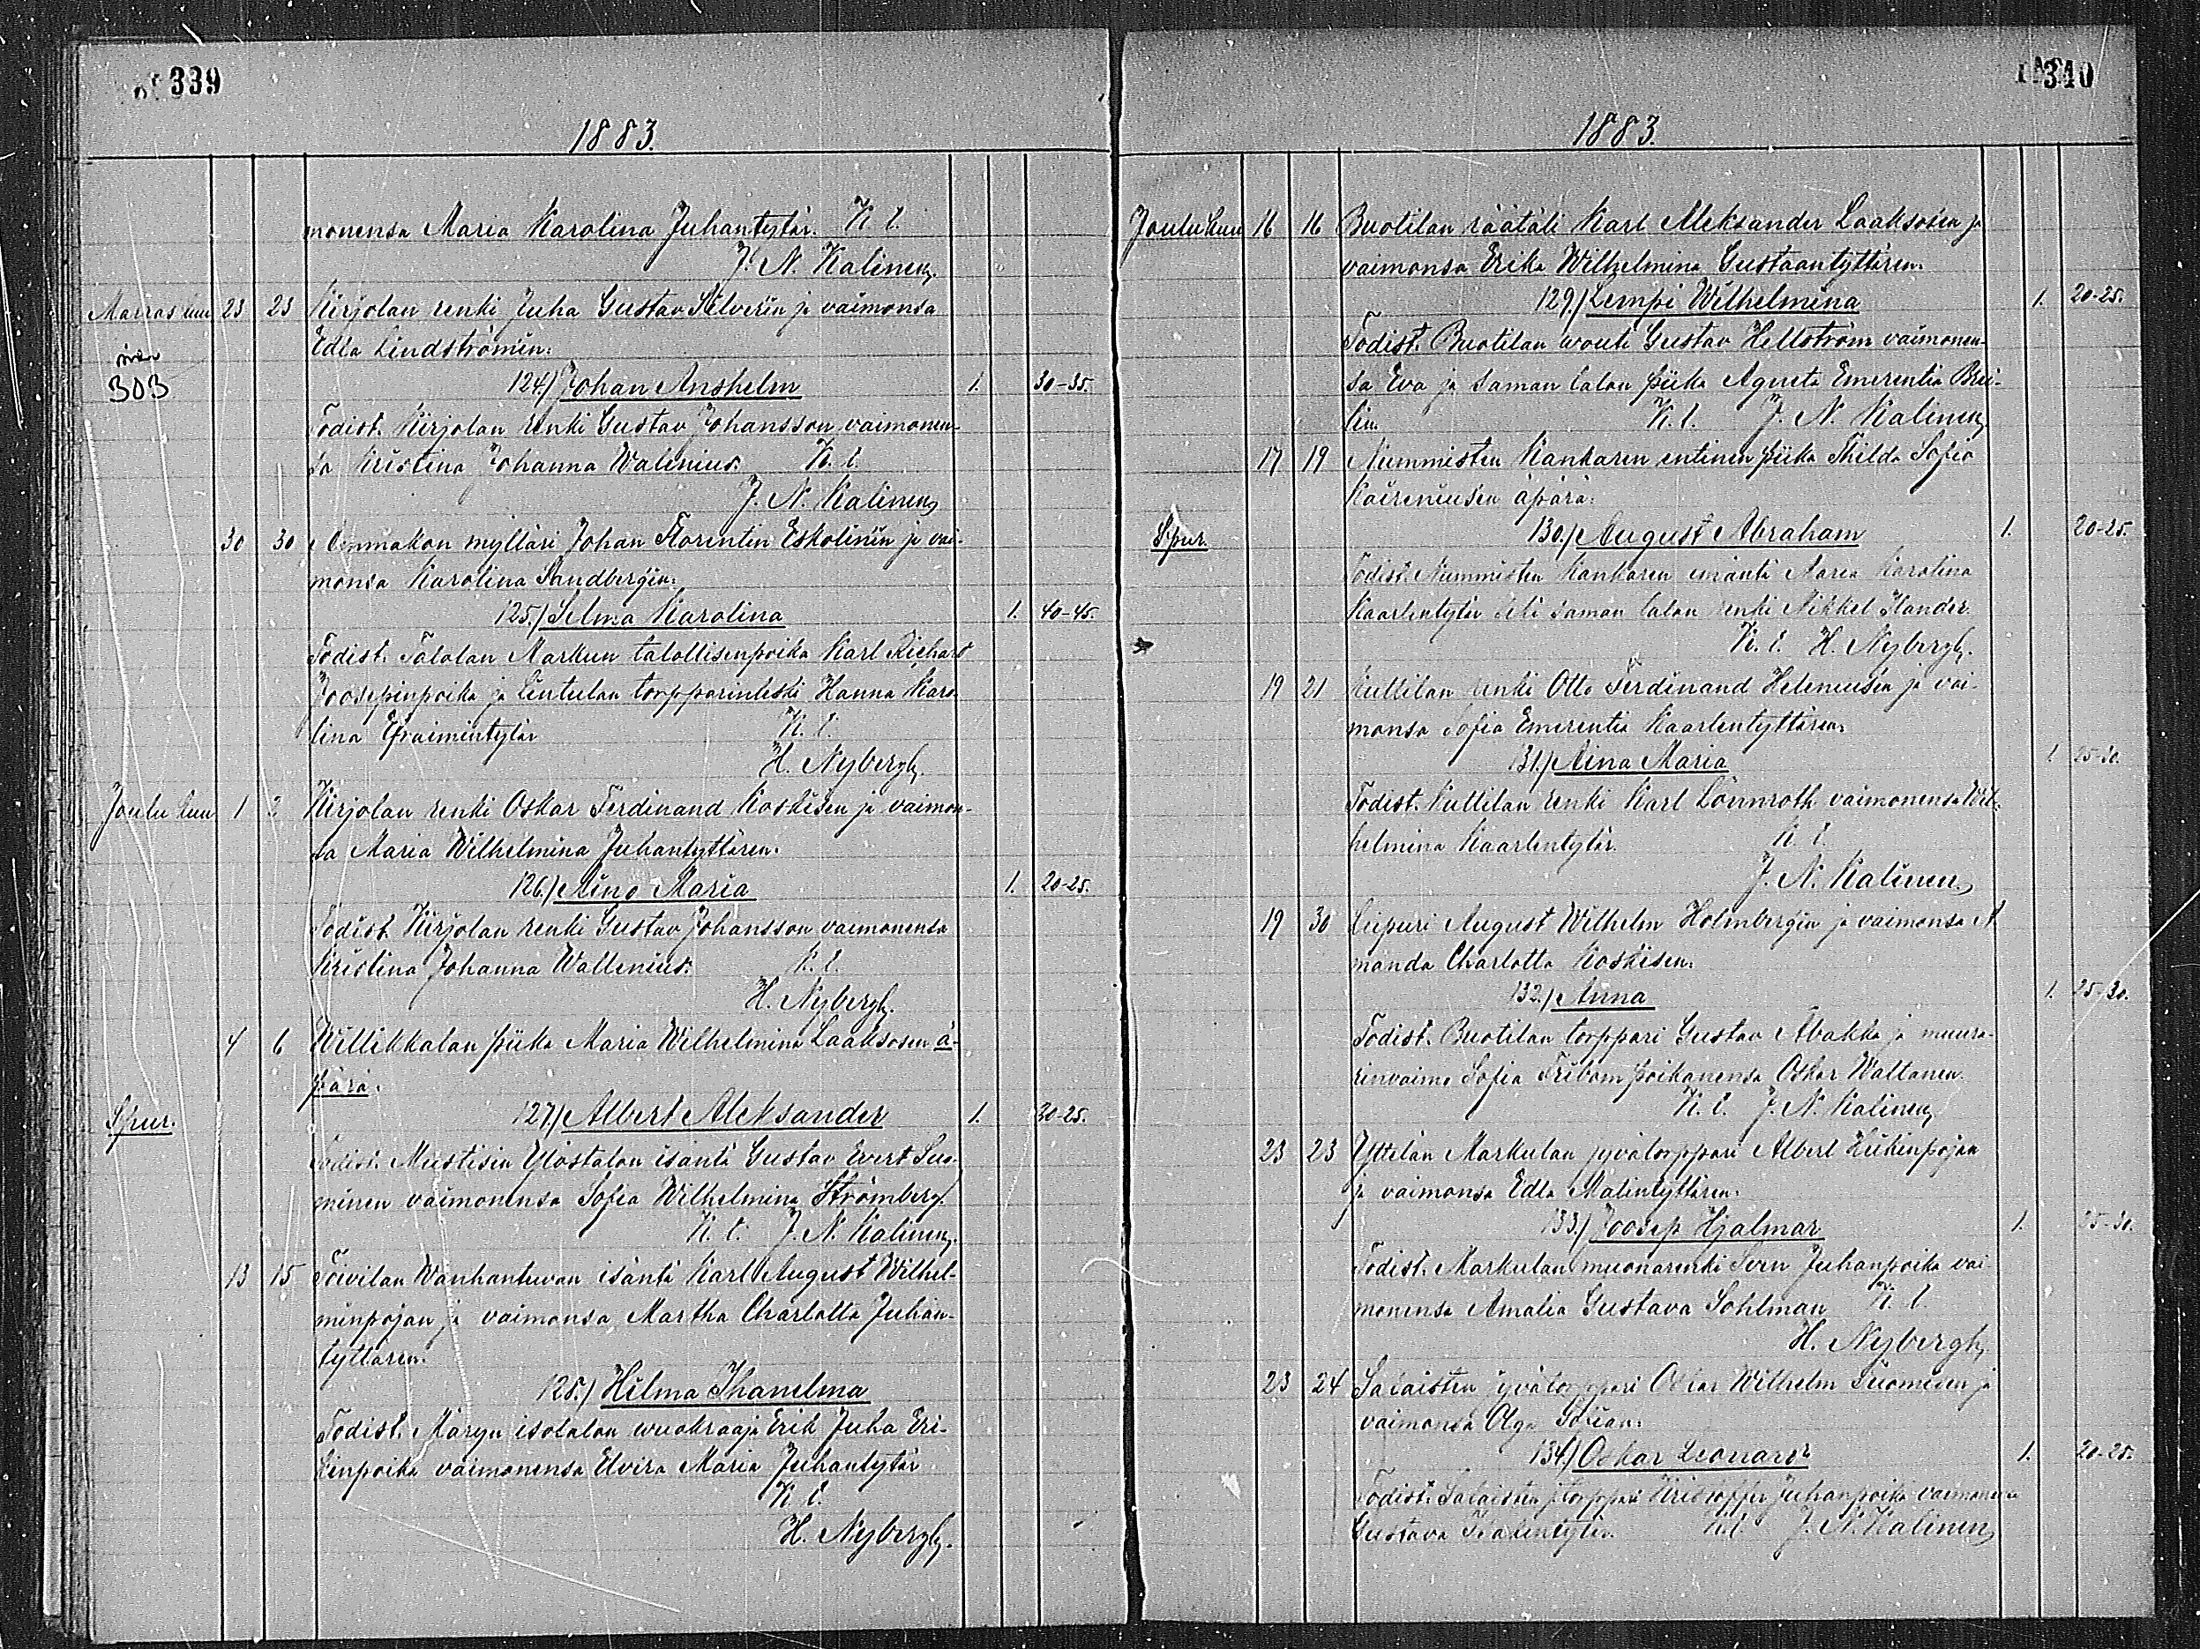 339
1883.
monensa Maria Karolina Juhantytär. K. t.
J. N. Kalinen
Marraskuu 23 23 Kirjolan renki Juha Gustav Silverin ja vaimonsa
Edla Lindströmin:
303
124.) Johan Anshelm 1. 30-35.
Todist. Kirjolan renki Gustav Johansson vaimonen-
sa Kristina Johanna Walenius. K. t.
J. N. Kalinen
30 30 mylläri Johan Florentin Eskolinin ja vai-
monsa Karolina Sandbergin:
125.) Selma Karolina 1. 40-45.
Todist. Talolan Markun talollisenpoika Karl Richard
Joosepinpoika ja Lintulan torpparinleski Hanna Karo-
lina Efraimintytär K. t.
H. Nybergh.
Joulukuu 1 2 Kirjolan renki Oskar Ferdinand Koskisen ja vaimon-
sa Maria Wilhelmina Juhantyttären.
126.) Aino Maria 1. 20-25.
Todist. Kirjolan renki Gustav Johansson vaimonensa
Kristina Johanna Wallenius. K. t.
H. Nybergh.
4 6 Willikkalan piika Maria Wilhelmina Laaksosen ä-
pärä.
Spur. 127.) Albert Aleksander 1. 20-25.
Todist. Mustisin Ylöstalon isäntä Gustav Evert Suo-
minen vaimonensa Sofia Wilhelmina Strömberg.
K. t. J. N. Kalinen.
13 15 Toivilan Wanhantuvan isäntä Karl August Wilhel-
minpojan ja vaimonsa Martha Charlotta Juhan-
tyttären.
128.) Hilma Ihanelma
Todist. Maryn isotalon wuokraaja Erik Juha Eri-
kinpoika vaimonensa Elvira Maria Juhantytär
K. t.
H. Nybergh.
340
1883.
Joulukuu 16 16 Buotilan räätäli Karl Aleksander Laaksosen ja
vaimonsa Erika Wilhelmina Gustaantyttären.
129.) Lempi Wilhelmina 1. 20-25.
Todist. Buotilan wouti Gustav Hellström vaimonen-
sa Eva ja saman talon piika Agneta Emerentia
lin. K. t. J. N. Kalinen
17 19 Nummisten Kankaren entinen piika Thilda Sofia
Kaireniusen äpärä:
Spur. 130.) August Abraham 1. 20-25.
Todist. Nummisten Kankaren emäntä Maria Karolina
Kaarlentytär saman talon renki Mikkel Ilander.
K. t. H. Nybergh.
19 21 Kultilan renki Otto Ferdinand Heleniusen ja vai-
monsa Sofia Emerentia Kaarlentyttären.
131.) Aina Maria 1. 25-30.
Todist. Kultilan renki Karl Lönnroth vaimonensa Wil-
helmina Kaarlentytär. K. t.
J. N. Kalinen.
19 30 August Wilhelm Holmbergin ja vaimonsa A
manda Charlotta Koskisen.
132.) Anna 1. 25-30.
Todist. Buotilan torppari Gustav Abakka ja muura-
rinvaimo Sofia poikanensa Oskar Waltanen.
K. t. J. N. Kalinen
23 23 Yttilän Markulan jyvätorppari Albert Eriikinpojan
ja vaimonsa Edla Malintyttären.
133.) Joosep Hjalmar 1. 25-30.
Todist. Markulan muonarenki Sven Juhanpoika vai
monensa Amalia Gustava Sohlman K. t.
H. Nybergh.
23 24 Salaisten jyvätorppari Oskar Wilhelm Suomisen ja
vaimonsa Olga Sofian:
134.) Oskar Leonard 1. 20-25.
Todist. Salaisten j.torppari Kristoffer Juhanpoika vaimonensa
Gustava K. t. J. N. Kalinen